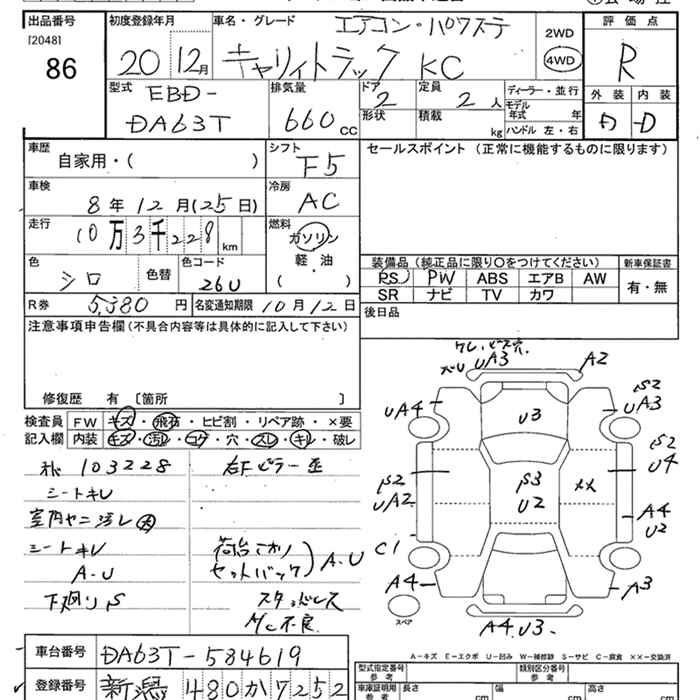 出品番号 初度登録年月 車名・グレード エアコン・パワステ 2WD 評価点
[2048]
86 20 12月 キャリイトラック KC 4WD R
型式 EBD- 排気量 ドア 定員 ディーラー・並行 外装 内装
DA63T 660cc 2 2人 モデル年式 年
形状 積載 kg ハンドル 左・右 D
車歴 シフト セールスポイント (正常に機能するものに限ります)
自家用・( ) F5
車検 冷房
8年12月(25日) AC
走行 燃料
10万3千228km ガソリン
軽・油
( )
色 シロ 色替 色コード 26U
装備品 (純正品に限り○をつけてください) 新車保証書
PS PW ABS エアB AW 有・無
SR ナビ TV カワ
R券 5,380円 名変通知期限 10月12日 後日品
注意事項申告欄 (不具合内容等は具体的に記入して下さい)
修復歴 有 〔箇所 〕
検査員 FW キズ・飛石・ヒビ割・リペア跡・×要
記入欄 内装 キズ・汚レ・コゲ・穴・スレ・キレ・破レ
UA3 A2
UA4 U3 S2
UA3
S2
UA2 S3
U2 ×× S2
U4
A4
U2
C1
A4 A3
A4 U3
スペア
103228
シートキレ
室内ヤニ汚レ大
シートキレ
A-U
下廻りS
セットバック A-U
スタッドレス
A/C不良
A-キズ E-エクボ U-凹み W-補修跡 S-サビ C-腐食 ××-交換済
車台番号 DA63T-584619
登録番号 新潟 480か7252
型式指定番号 参考 類別区分番号 参考
車庫証明用 参考 長さ cm 幅 cm 高さ cm